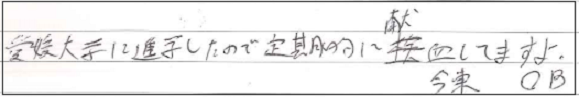 愛媛大学に進学したので定期的に献血してますよ。
今東 OB